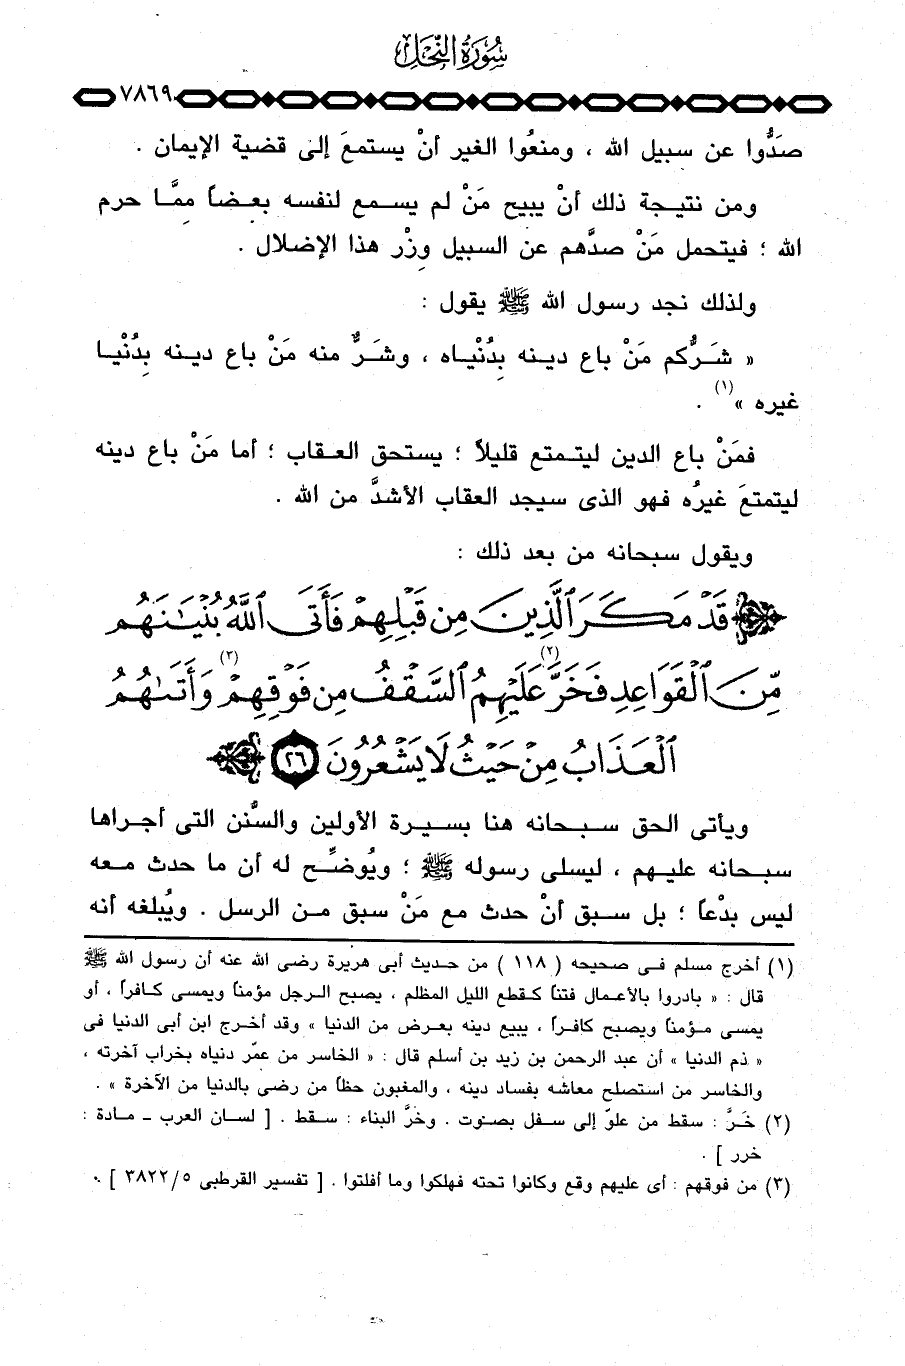 سُورَةُ النَّحْل
٧٨٦٩
صدُّوا عن سبيل الله ، ومنعُوا الغير أنْ يستمعَ إلى قضية الإيمان .
ومن نتيجة ذلك أنْ يبيح مَنْ لم يسمع لنفسه بعضاً مِمَّا حرم
الله ؛ فيتحمل مَنْ صدَّهم عن السبيل وِزْر هذا الإضلال .
ولذلك نجد رسول الله ﷺ يقول :
« شَرُّكم مَنْ باع دينه بِدُنْياه ، وشَرٌّ منه مَنْ باع دينه بِدُنْيا
غيره »(١) .
فمَنْ باع الدين ليتمتع قليلاً ؛ يستحق العقاب ؛ أما مَنْ باع دينه
ليتمتعَ غيرُه فهو الذى سيجد العقاب الأشدَّ من الله .
ويقول سبحانه من بعد ذلك :
قَدْ مَكَرَ ٱلَّذِينَ مِن قَبْلِهِمْ فَأَتَى ٱللَّهُ بُنْيَـٰنَهُم
مِّنَ ٱلْقَوَاعِدِ فَخَرَّ(٢) عَلَيْهِمُ ٱلسَّقْفُ مِن فَوْقِهِمْ(٣) وَأَتَىٰهُمُ
ٱلْعَذَابُ مِنْ حَيْثُ لَا يَشْعُرُونَ ٢٦
ويأتى الحق سبحانه هنا بسيرة الأولين والسُّنن التى أجراها
سبحانه عليهم ، ليسلى رسوله ﷺ ؛ ويُوضِّح له أن ما حدث معه
ليس بدْعاً ؛ بل سبق أنْ حدث مع مَنْ سبق من الرسل . ويُبلغه أنه
(١) أخرج مسلم فى صحيحه ( ١١٨ ) من حديث أبى هريرة رضى الله عنه أن رسول الله ﷺ
قال : « بادروا بالأعمال فتناً كقطع الليل المظلم ، يصبح الرجل مؤمناً ويمسى كافراً ، أو
يمسى مؤمناً ويصبح كافراً ، يبيع دينه بعرض من الدنيا » وقد أخرج ابن أبى الدنيا فى
« ذم الدنيا » أن عبد الرحمن بن زيد بن أسلم قال : « الخاسر من عمّر دنياه بخراب آخرته ،
والخاسر من استصلح معاشه بفساد دينه ، والمغبون حظاً من رضى بالدنيا من الآخرة » .
(٢) خَرَّ : سقط من علوّ إلى سفل بصوت . وخرَّ البناء : سقط . [ لسان العرب - مادة :
خرر ] .
(٣) من فوقهم : أى عليهم وقع وكانوا تحته فهلكوا وما أفلتوا . [ تفسير القرطبى ٣٨٢٢/٥ ] .